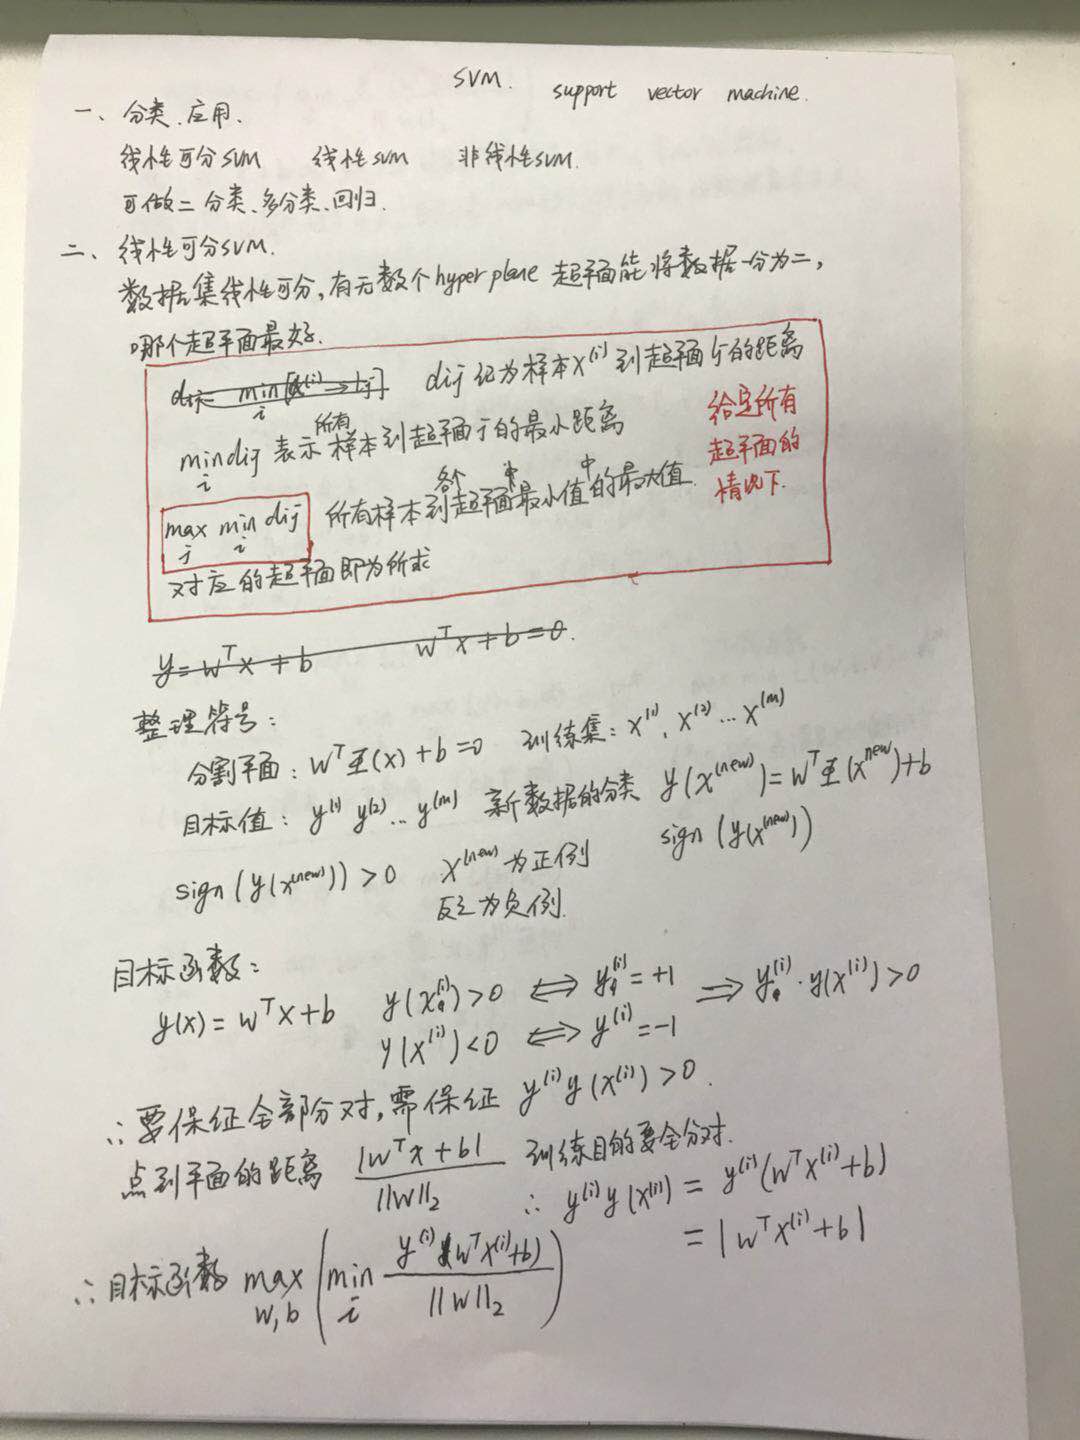 SVM. support vector machine.
一、分类、应用、
线性可分SVM 线性SVM 非线性SVM.
可做二分类、多分类、回归.
二、线性可分SVM.
数据集线性可分,有无数个hyper plane 超平面能将数据一分为二,
哪个超平面最好.
dij 记为样本x⁽ⁱ⁾到超平面j的距离
min_i dij 表示所有样本到超平面j的最小距离
给定所有
超平面的
情况下.
max_j min_i dij 所有样本到各个超平面中最小值中的最大值.
对应的超平面即为所求
y=wᵀx+b wᵀx+b=0.
整理符号:
分割平面: wᵀΦ(x)+b=0 训练集: x⁽¹⁾, x⁽²⁾…x⁽ᵐ⁾
目标值: y⁽¹⁾ y⁽²⁾… y⁽ᵐ⁾ 新数据的分类 y(x⁽ⁿᵉʷ⁾)=wᵀΦ(xⁿᵉʷ)+b
sign(y(x⁽ⁿᵉʷ⁾))>0 x⁽ⁿᵉʷ⁾为正例 sign(y(x⁽ⁿᵉʷ⁾))
反之为负例.
目标函数:
y(x)=wᵀx+b y(x⁽ⁱ⁾)>0 ⟺ y⁽ⁱ⁾=+1 ⟹ y⁽ⁱ⁾·y(x⁽ⁱ⁾)>0
y(x⁽ⁱ⁾)<0 ⟺ y⁽ⁱ⁾=-1
∴要保证全部分对,需保证 y⁽ⁱ⁾y(x⁽ⁱ⁾)>0.
点到平面的距离 |wᵀx+b| / ||w||₂ 训练目的要全分对.
∴ y⁽ⁱ⁾y(x⁽ⁱ⁾)=y⁽ⁱ⁾(wᵀx⁽ⁱ⁾+b)
=|wᵀx⁽ⁱ⁾+b|
∴目标函数 max_{w,b} (min_i y⁽ⁱ⁾(wᵀx⁽ⁱ⁾+b) / ||w||₂)